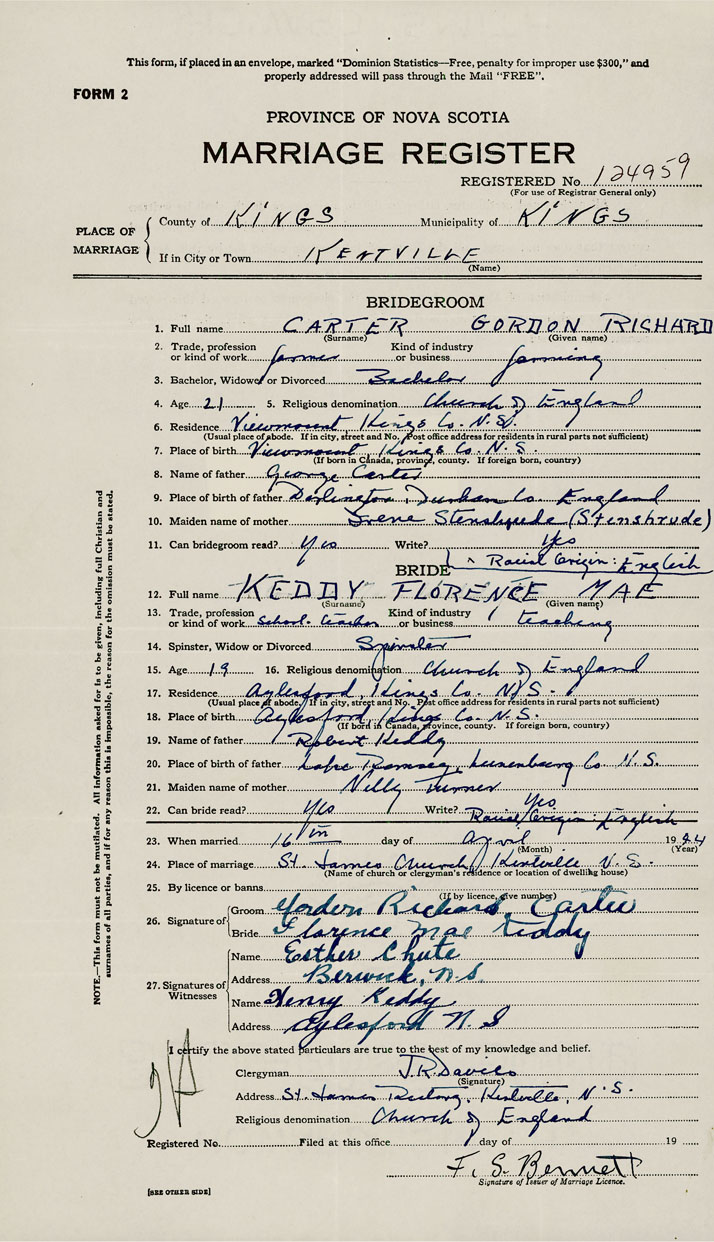 This form, if placed in an envelope, marked “Dominion Statistics—Free, penalty for improper use $300,” and
properly addressed will pass through the Mail “FREE”.
FORM 2
PROVINCE OF NOVA SCOTIA
MARRIAGE REGISTER
REGISTERED No. 124959
(For use of Registrar General only)
PLACE OF MARRIAGE
County of KINGS Municipality of KINGS
If in City or Town KENTVILLE
(Name)
BRIDEGROOM
1. Full name CARTER GORDON RICHARD
(Surname) (Given name)
2. Trade, profession or kind of work farmer Kind of industry or business farming
3. Bachelor, Widower or Divorced Bachelor
4. Age 21 5. Religious denomination Church of England
6. Residence Viewmount Kings Co. N.S.
(Usual place of abode. If in city, street and No. Post office address for residents in rural parts not sufficient)
7. Place of birth Viewmount Kings Co. N.S.
(If born in Canada, province, county. If foreign born, country)
8. Name of father George Carter
9. Place of birth of father Darlington Durham Co. England
10. Maiden name of mother Irene (Stenshrude)
11. Can bridegroom read? Yes Write? Yes
Racial Origin: English
BRIDE
12. Full name KEDDY FLORENCE MAE
(Surname) (Given name)
13. Trade, profession or kind of work School-teacher Kind of industry or business teaching
14. Spinster, Widow or Divorced Spinster
15. Age 19 16. Religious denomination Church of England
17. Residence Aylesford, Kings Co. N.S.
(Usual place of abode. If in city, street and No. Post office address for residents in rural parts not sufficient)
18. Place of birth Aylesford, Kings Co. N.S.
(If born in Canada, province, county. If foreign born, country)
19. Name of father Robert Keddy
20. Place of birth of father Lake Ramsay, Lunenburg Co. N.S.
21. Maiden name of mother Nelly Turner
22. Can bride read? Yes Write? Yes
Racial Origin: English
23. When married 16th day of April 1944
(Month) (Year)
24. Place of marriage St. James Church, Kentville N.S.
(Name of church or clergyman's residence or location of dwelling house)
25. By licence or banns
(If by licence, give number)
26. Signature of
Groom Gordon Richard Carter
Bride Florence Mae Keddy
27. Signatures of Witnesses
Name Esther Chute
Address Berwick, N.S.
Name Henry Keddy
Address Aylesford N.S
I certify the above stated particulars are true to the best of my knowledge and belief.
Clergyman J.R. Davies
(Signature)
Address St. James Rectory, Kentville, N.S.
Religious denomination Church of England
Registered No. Filed at this office day of 19
F. S. Bennett
Signature of Issuer of Marriage Licence.
[SEE OTHER SIDE]
NOTE.—This form must not be mutilated. All information asked for is to be given, including full Christian and
surnames of all parties, and if for any reason this is impossible, the reason for the omission must be stated.